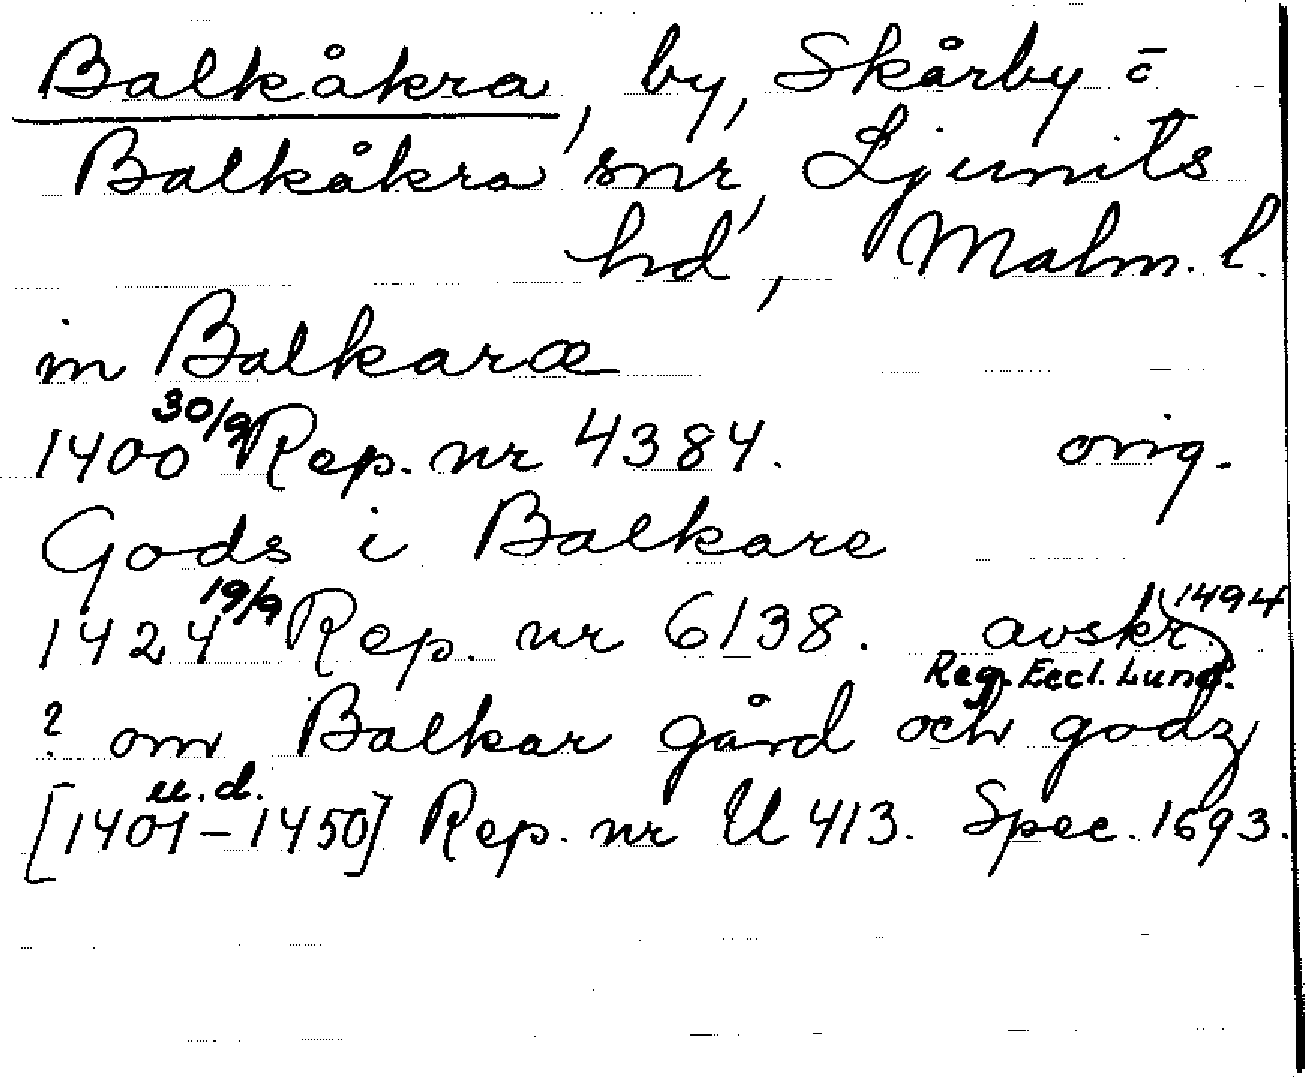 Balkåkra, by, Skårby o
Balkåkra snr, Ljunits
hd, Malm. l.
in Balkaræ
1400 30/9 Rep. nr 4384. orig.
Gods i Balkare
1424 19/9 Rep. nr 6138. avskr. 1494
Reg. Eccl. Lund.
? om Balkar gård och godz
u.d.
[1401–1450] Rep. nr U 413. Spec. 1693.